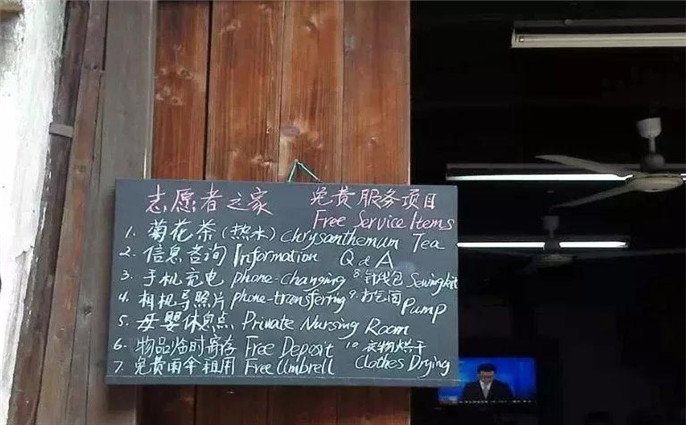 志愿者之家 免费服务项目
Free Service Items
1. 菊花茶(热水) Chrysanthemum Tea
2. 信息咨询 Information Q & A
3. 手机充电 phone-changing 8. 针线包 Sewing kit
4. 相机导照片 phone-transferring 9. 打气筒 Pump
5. 母婴休息点 Private Nursing Room
6. 物品临时寄存 Free Deposit 10. 衣物烘干
7. 免费雨伞租用 Free Umbrell Clothes Drying